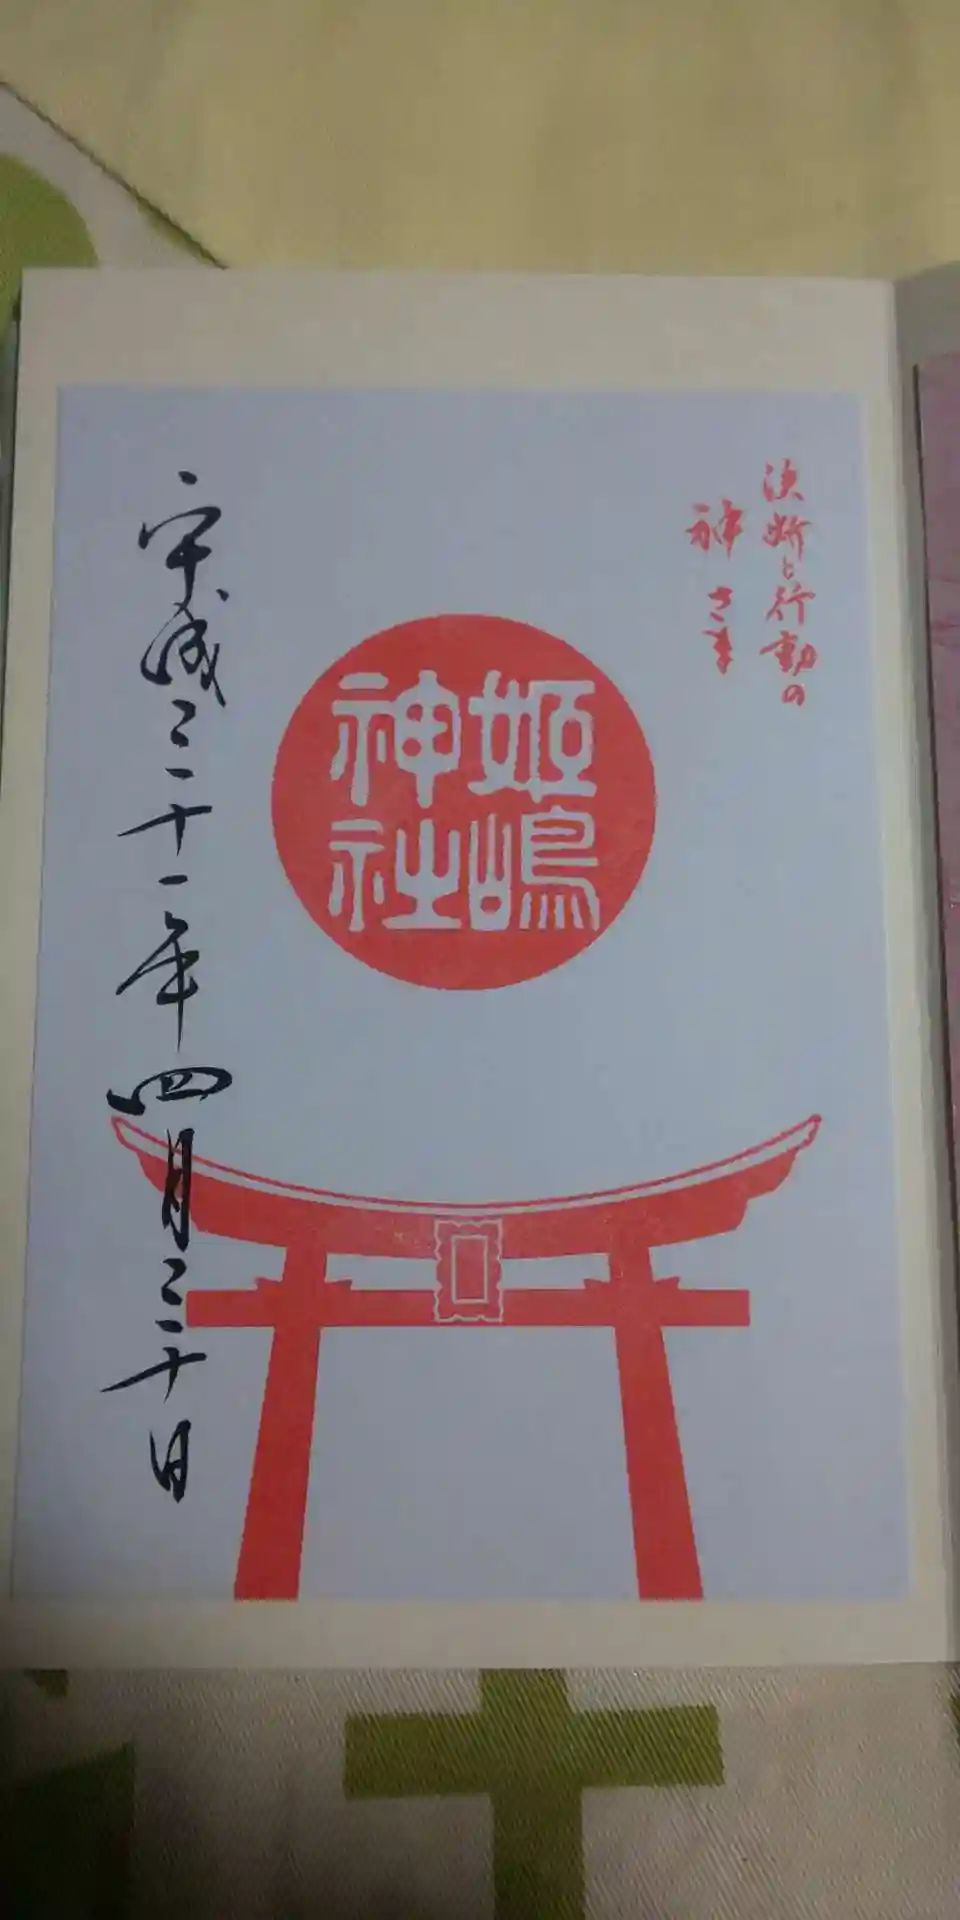 決断と行動の
神さま
姫嶋
神社
平成三十一年四月三十日